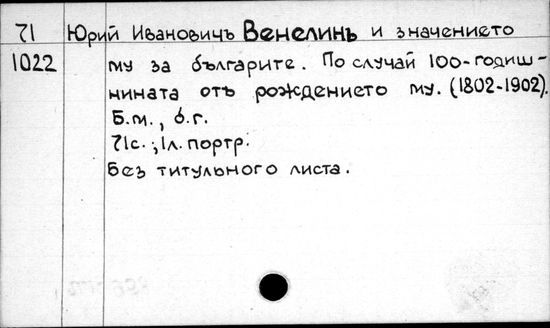 71 Юрий Ивановичъ Венелинъ и значението
1022 му за българите. По случай 100-годиш-
нината отъ рождението му. (1802-1902).
Б.м., б.г.
71с.; 1л. портр.
Без титульного листа.